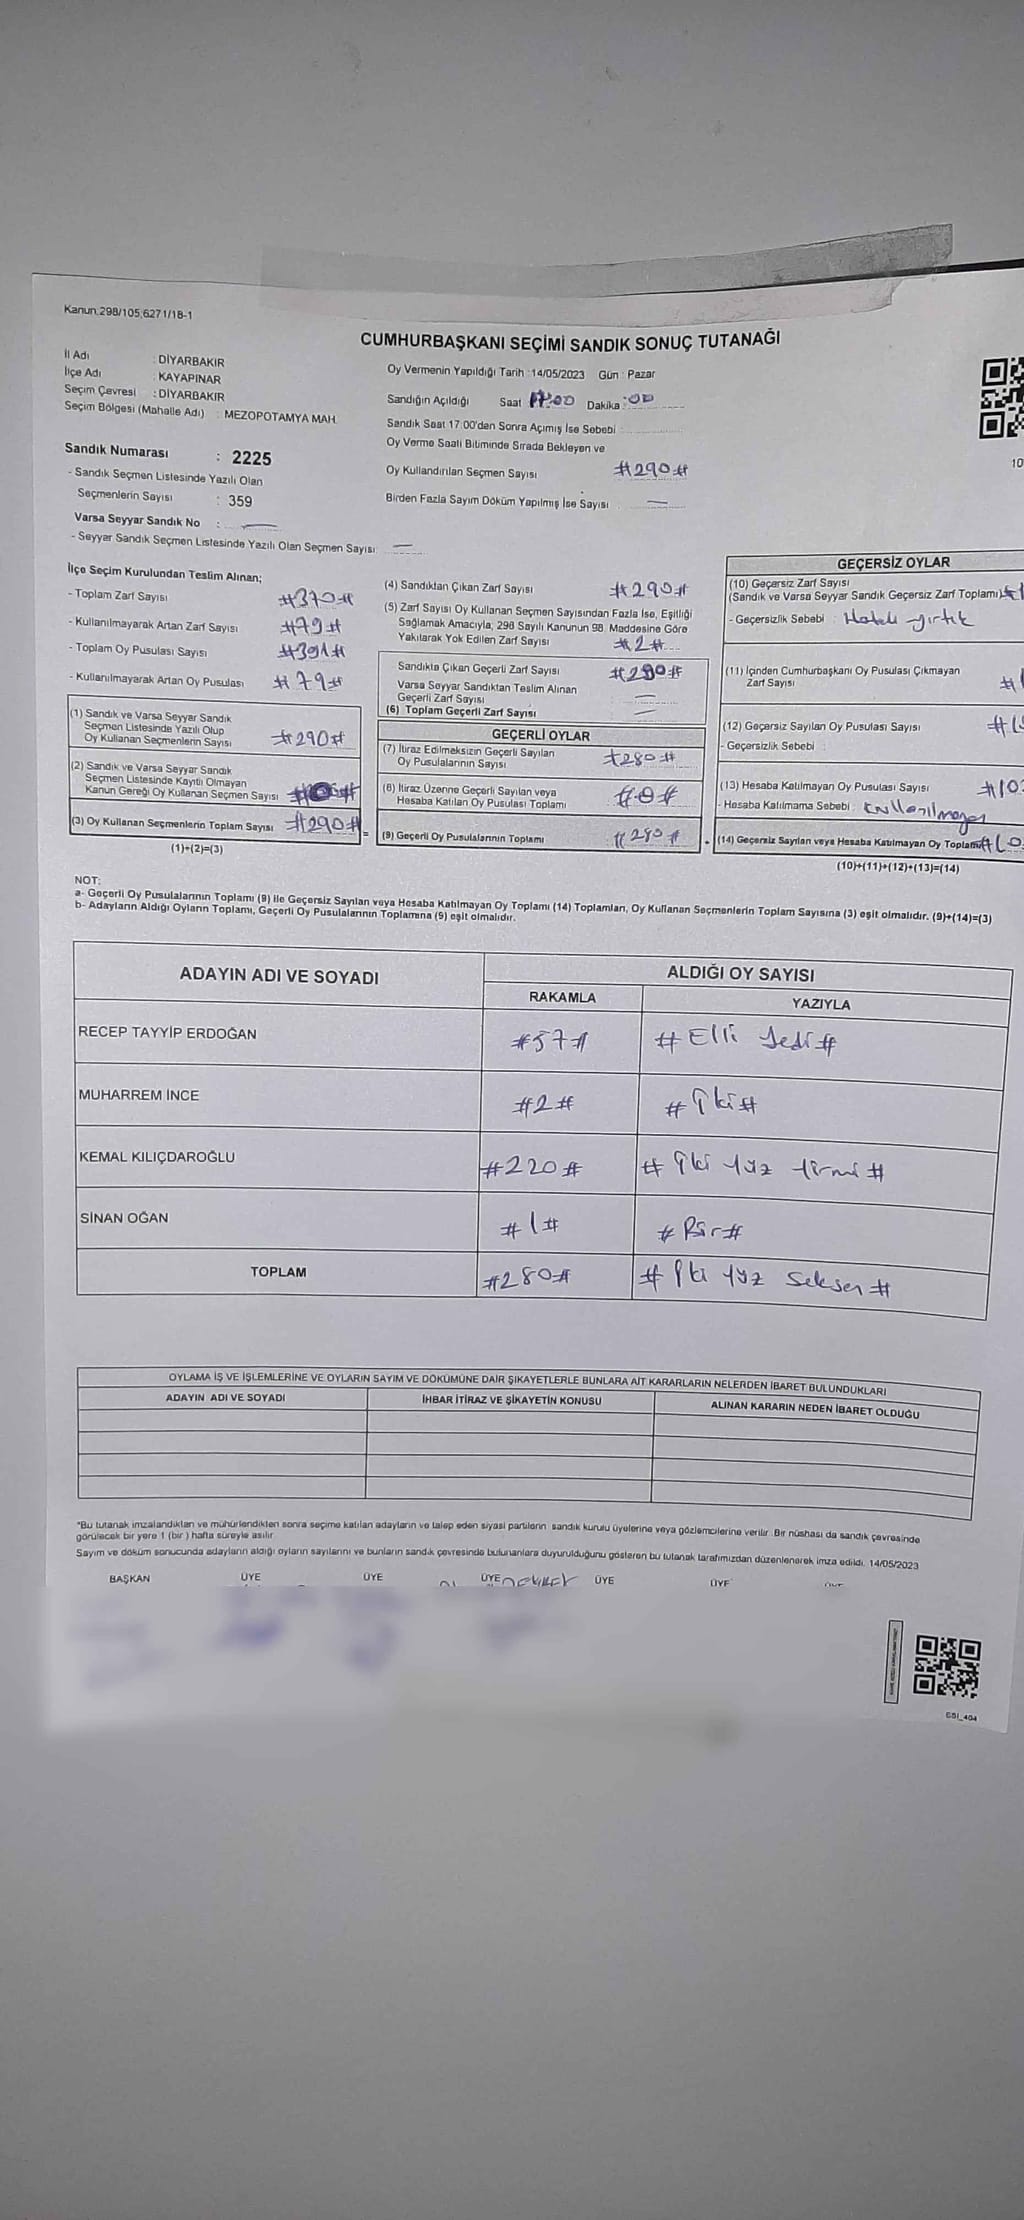 Kanun;298/105;6271/18-1
CUMHURBAŞKANI SEÇİMİ SANDIK SONUÇ TUTANAĞI
İl Adı : DİYARBAKIR
İlçe Adı : KAYAPINAR
Seçim Çevresi : DİYARBAKIR
Seçim Bölgesi (Mahalle Adı) : MEZOPOTAMYA MAH.
Oy Vermenin Yapıldığı Tarih : 14/05/2023 Gün : Pazar
Sandığın Açıldığı Saat Dakika : 00
Sandık Saat 17:00'den Sonra Açımış İse Sebebi :
Oy Verme Saati Bitiminde Sırada Bekleyen ve
Oy Kullandırılan Seçmen Sayısı #290#
Birden Fazla Sayım Döküm Yapılmış İse Sayısı : —
Sandık Numarası : 2225
- Sandık Seçmen Listesinde Yazılı Olan
Seçmenlerin Sayısı : 359
Varsa Seyyar Sandık No : —
- Seyyar Sandık Seçmen Listesinde Yazılı Olan Seçmen Sayısı: —
İlçe Seçim Kurulundan Teslim Alınan;
- Toplam Zarf Sayısı #370#
- Kullanılmayarak Artan Zarf Sayısı #79#
- Toplam Oy Pusulası Sayısı #391#
- Kullanılmayarak Artan Oy Pusulası #79#
(1) Sandık ve Varsa Seyyar Sandık
Seçmen Listesinde Yazılı Olup
Oy Kullanan Seçmenlerin Sayısı #290#
(2) Sandık ve Varsa Seyyar Sandık
Seçmen Listesinde Kayıtlı Olmayan
Kanun Gereği Oy Kullanan Seçmen Sayısı
(3) Oy Kullanan Seçmenlerin Toplam Sayısı #290# =
(1)+(2)=(3)
(4) Sandıktan Çıkan Zarf Sayısı #290#
(5) Zarf Sayısı Oy Kullanan Seçmen Sayısından Fazla İse, Eşitliği
Sağlamak Amacıyla, 298 Sayılı Kanunun 98. Maddesine Göre
Yakılarak Yok Edilen Zarf Sayısı #2#
Sandıkta Çıkan Geçerli Zarf Sayısı #290#
Varsa Seyyar Sandıktan Teslim Alınan
Geçerli Zarf Sayısı —
(6) Toplam Geçerli Zarf Sayısı —
GEÇERLİ OYLAR
(7) İtiraz Edilmeksizin Geçerli Sayılan
Oy Pusulalarının Sayısı #280#
(8) İtiraz Üzerine Geçerli Sayılan veya
Hesaba Katılan Oy Pusulası Toplamı #0#
(9) Geçerli Oy Pusulalarının Toplamı #280# +
GEÇERSİZ OYLAR
(10) Geçersiz Zarf Sayısı
(Sandık ve Varsa Seyyar Sandık Geçersiz Zarf Toplamı)
- Geçersizlik Sebebi : Hatalı yırtık
(11) İçinden Cumhurbaşkanı Oy Pusulası Çıkmayan
Zarf Sayısı
(12) Geçersiz Sayılan Oy Pusulası Sayısı
- Geçersizlik Sebebi :
(13) Hesaba Katılmayan Oy Pusulası Sayısı #10
- Hesaba Katılmama Sebebi :
(14) Geçersiz Sayılan veya Hesaba Katılmayan Oy Toplamı #10
(10)+(11)+(12)+(13)=(14)
NOT:
a- Geçerli Oy Pusulalarının Toplamı (9) ile Geçersiz Sayılan veya Hesaba Katılmayan Oy Toplamı (14) Toplamları, Oy Kullanan Seçmenlerin Toplam Sayısına (3) eşit olmalıdır. (9)+(14)=(3)
b- Adayların Aldığı Oyların Toplamı, Geçerli Oy Pusulalarının Toplamına (9) eşit olmalıdır.
ADAYIN ADI VE SOYADI ALDIĞI OY SAYISI
RAKAMLA YAZIYLA
RECEP TAYYİP ERDOĞAN #57# #Elli Yedi#
MUHARREM İNCE #2# #İki#
KEMAL KILIÇDAROĞLU #220# #İki Yüz Yirmi#
SİNAN OĞAN #1# #Bir#
TOPLAM #280# #İki Yüz Seksen#
OYLAMA İŞ VE İŞLEMLERİNE VE OYLARIN SAYIM VE DÖKÜMÜNE DAİR ŞİKAYETLERLE BUNLARA AİT KARARLARIN NELERDEN İBARET BULUNDUKLARI
ADAYIN ADI VE SOYADI İHBAR İTİRAZ VE ŞİKAYETİN KONUSU ALINAN KARARIN NEDEN İBARET OLDUĞU
*Bu tutanak imzalandıktan ve mühürlendikten sonra seçime katılan adayların ve talep eden siyasi partilerin sandık kurulu üyelerine veya gözlemcilerine verilir. Bir nüshası da sandık çevresinde
görülecek bir yere 1 (bir ) hafta süreyle asılır.
Sayım ve döküm sonucunda adayların aldığı oyların sayılarını ve bunların sandık çevresinde bulunanlara duyurulduğunu gösteren bu tutanak tarafımızdan düzenlenerek imza edildi. 14/05/2023
BAŞKAN ÜYE ÜYE ÜYE ÜYE ÜYE